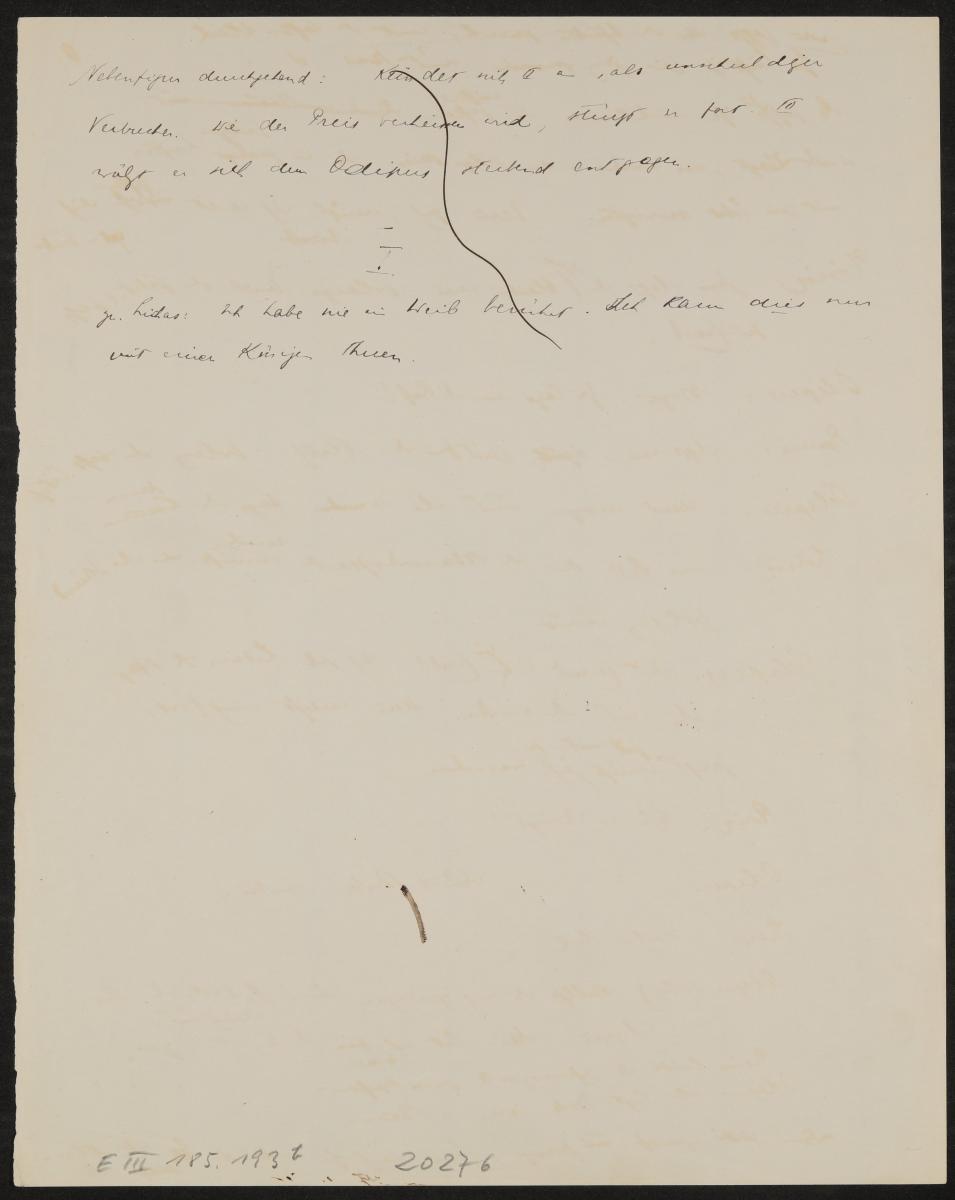 Nebenfigur durchgehend: Kündet sich II an, als unschuldiger
Verbrecher. Wie der Preis verheissen wird, stürzt er fort. III
wälzt er sich dem Ödipus sterbend entgegen.
I.
Lichas: Ich habe nie ein Weib berührt. Ich kann dies nur
mit einer Königin thuen.
E III 185.193b 20276